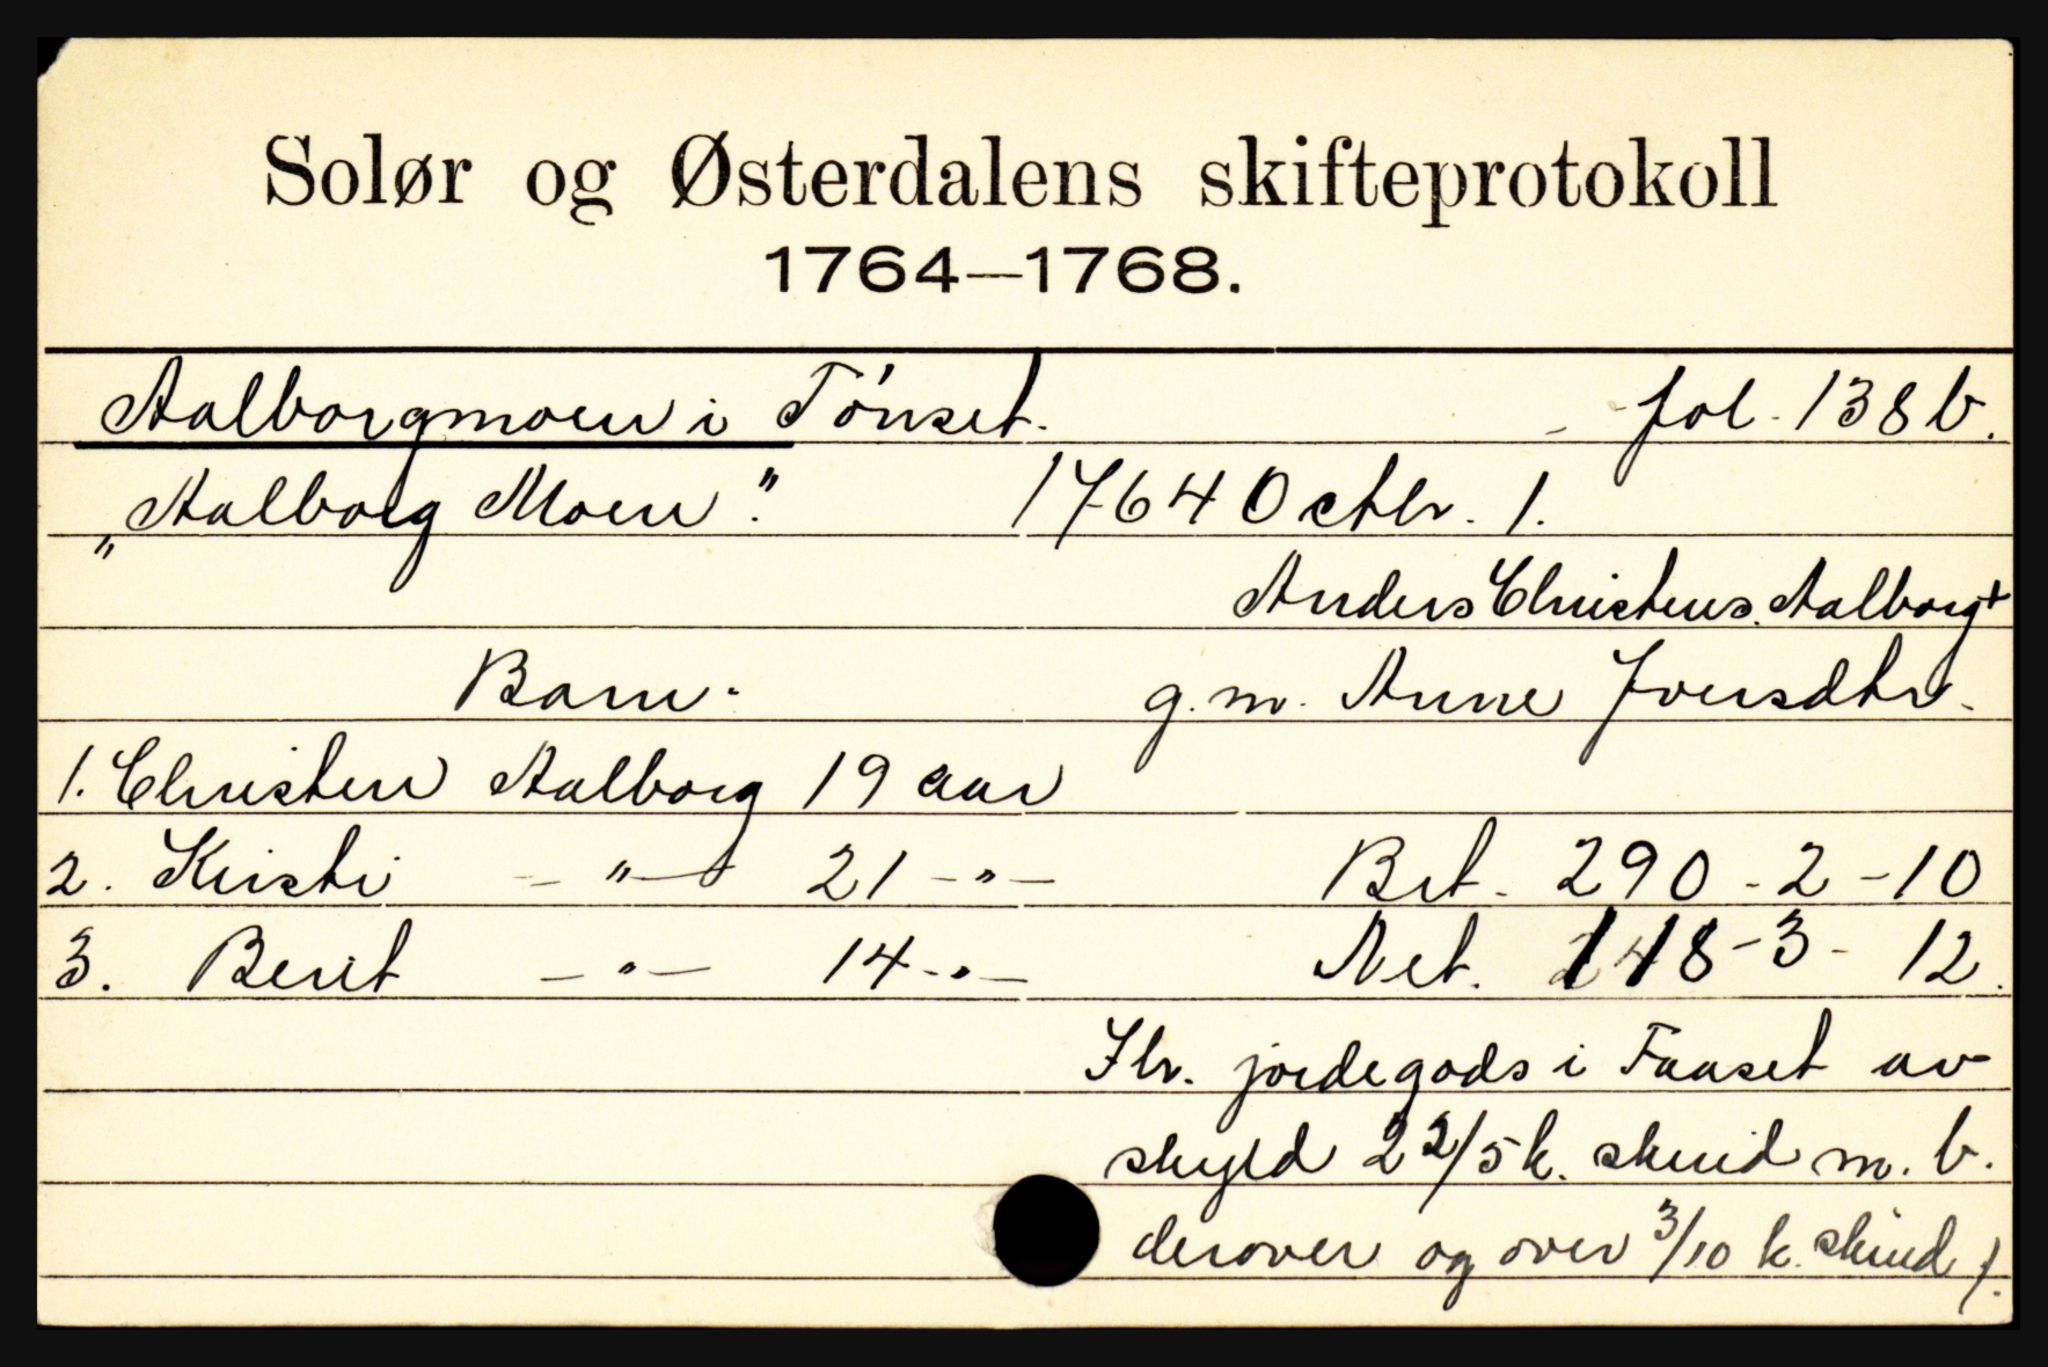 Solør og Østerdalens skifteprotokoll
1764—1768.
Aalborgmoen i Tónset. - fol. 138 b.
„Aalborg Moen". 1764 Octbr. 1.
Anders Christens. Aalborg +
Barn. g. m. Anne Iversdtr.
1. Christen Aalborg 19 aar
2. Kristi - " - 21 - " - Brt. 290 - 2 - 10
3. Berit - " - 14 - " - Net. 148 - 3 - 12.
Flr. jordegods i Faaset av
skyld 2 2/5 k. skind m. b.
derover og over 3/10 k. skind